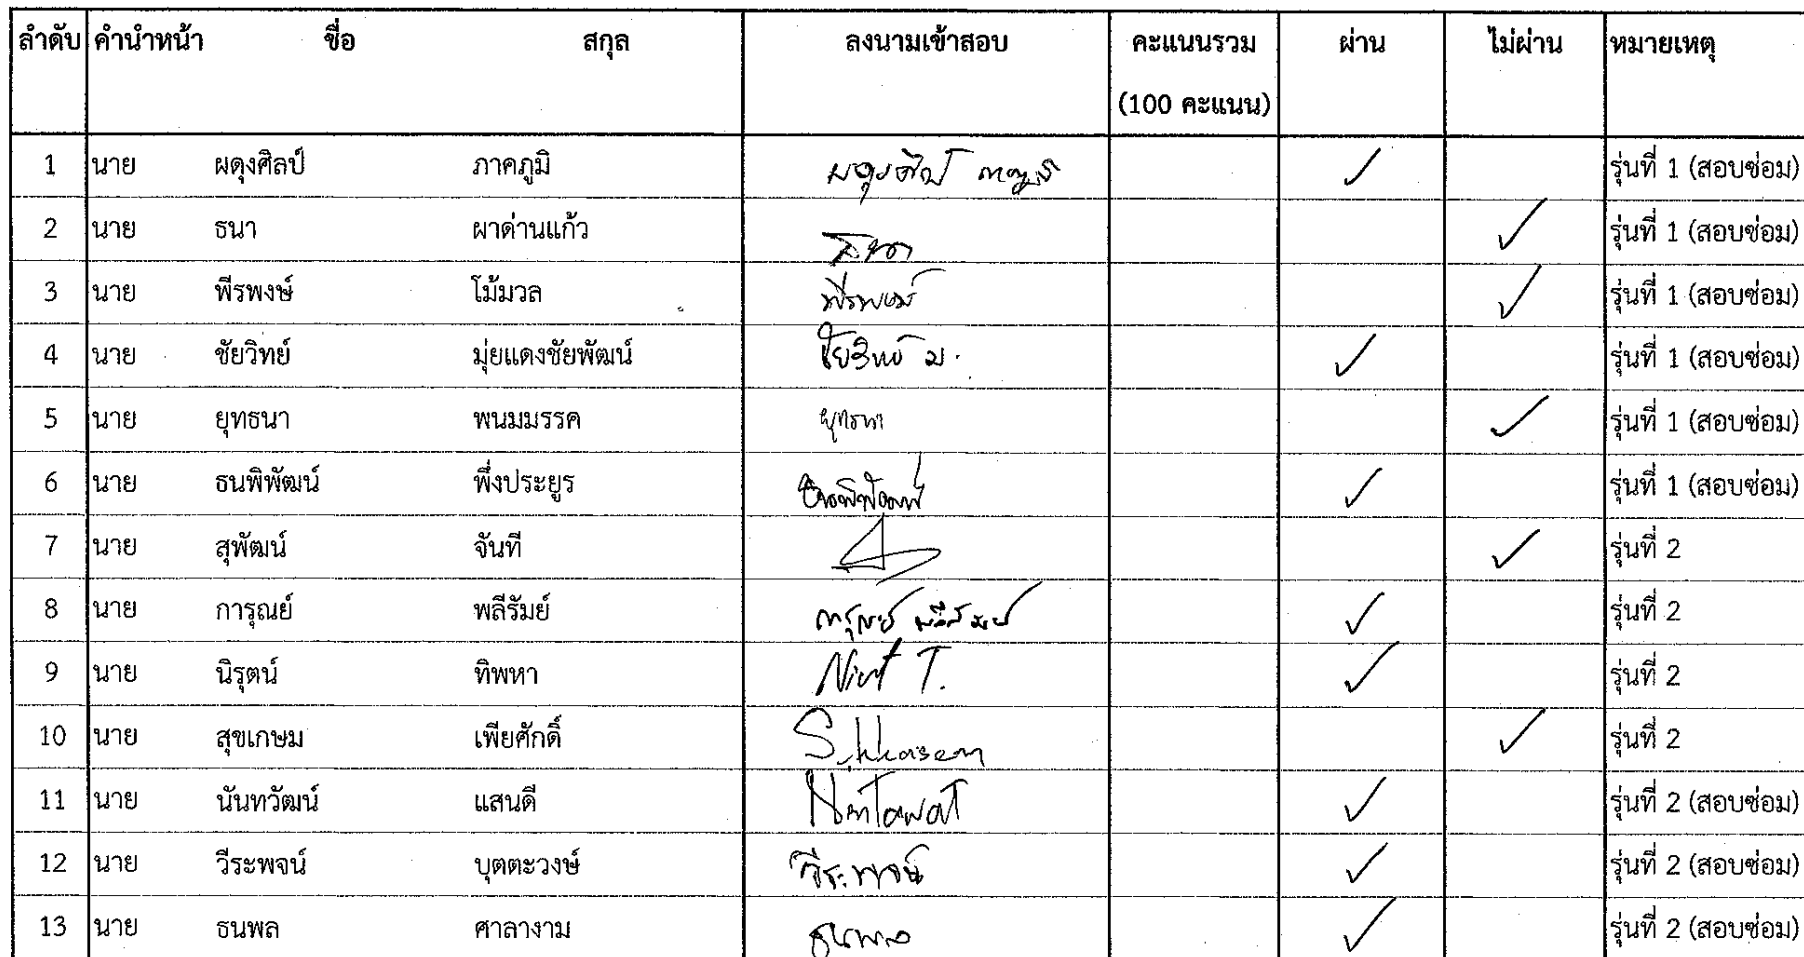 ลำดับ คำนำหน้า ชื่อ สกุล ลงนามเข้าสอบ คะแนนรวม ผ่าน ไม่ผ่าน หมายเหตุ
(100 คะแนน)
1 นาย ผดุงศิลป์ ภาคภูมิ ผดุงศิลป์ ภาคภูมิ ✓ รุ่นที่ 1 (สอบซ่อม)
2 นาย ธนา ผาด่านแก้ว ธนา ✓ รุ่นที่ 1 (สอบซ่อม)
3 นาย พีรพงษ์ โม้มวล พีรพงษ์ ✓ รุ่นที่ 1 (สอบซ่อม)
4 นาย ชัยวิทย์ มุ่ยแดงชัยพัฒน์ ชัยวิทย์ ม. ✓ รุ่นที่ 1 (สอบซ่อม)
5 นาย ยุทธนา พนมมรรค ยุทธนา ✓ รุ่นที่ 1 (สอบซ่อม)
6 นาย ธนพิพัฒน์ พึ่งประยูร ธนพิพัฒน์ ✓ รุ่นที่ 1 (สอบซ่อม)
7 นาย สุพัฒน์ จันที ✓ รุ่นที่ 2
8 นาย การุณย์ พลีรัมย์ การุณย์ พลีรัมย์ ✓ รุ่นที่ 2
9 นาย นิรุตน์ ทิพหา T. ✓ รุ่นที่ 2
10 นาย สุขเกษม เพียศักดิ์ Sukkasem ✓ รุ่นที่ 2
11 นาย นันทวัฒน์ แสนดี Nantawat ✓ รุ่นที่ 2 (สอบซ่อม)
12 นาย วีระพจน์ บุตตะวงษ์ วีระพจน์ ✓ รุ่นที่ 2 (สอบซ่อม)
13 นาย ธนพล ศาลางาม ธนพล ✓ รุ่นที่ 2 (สอบซ่อม)